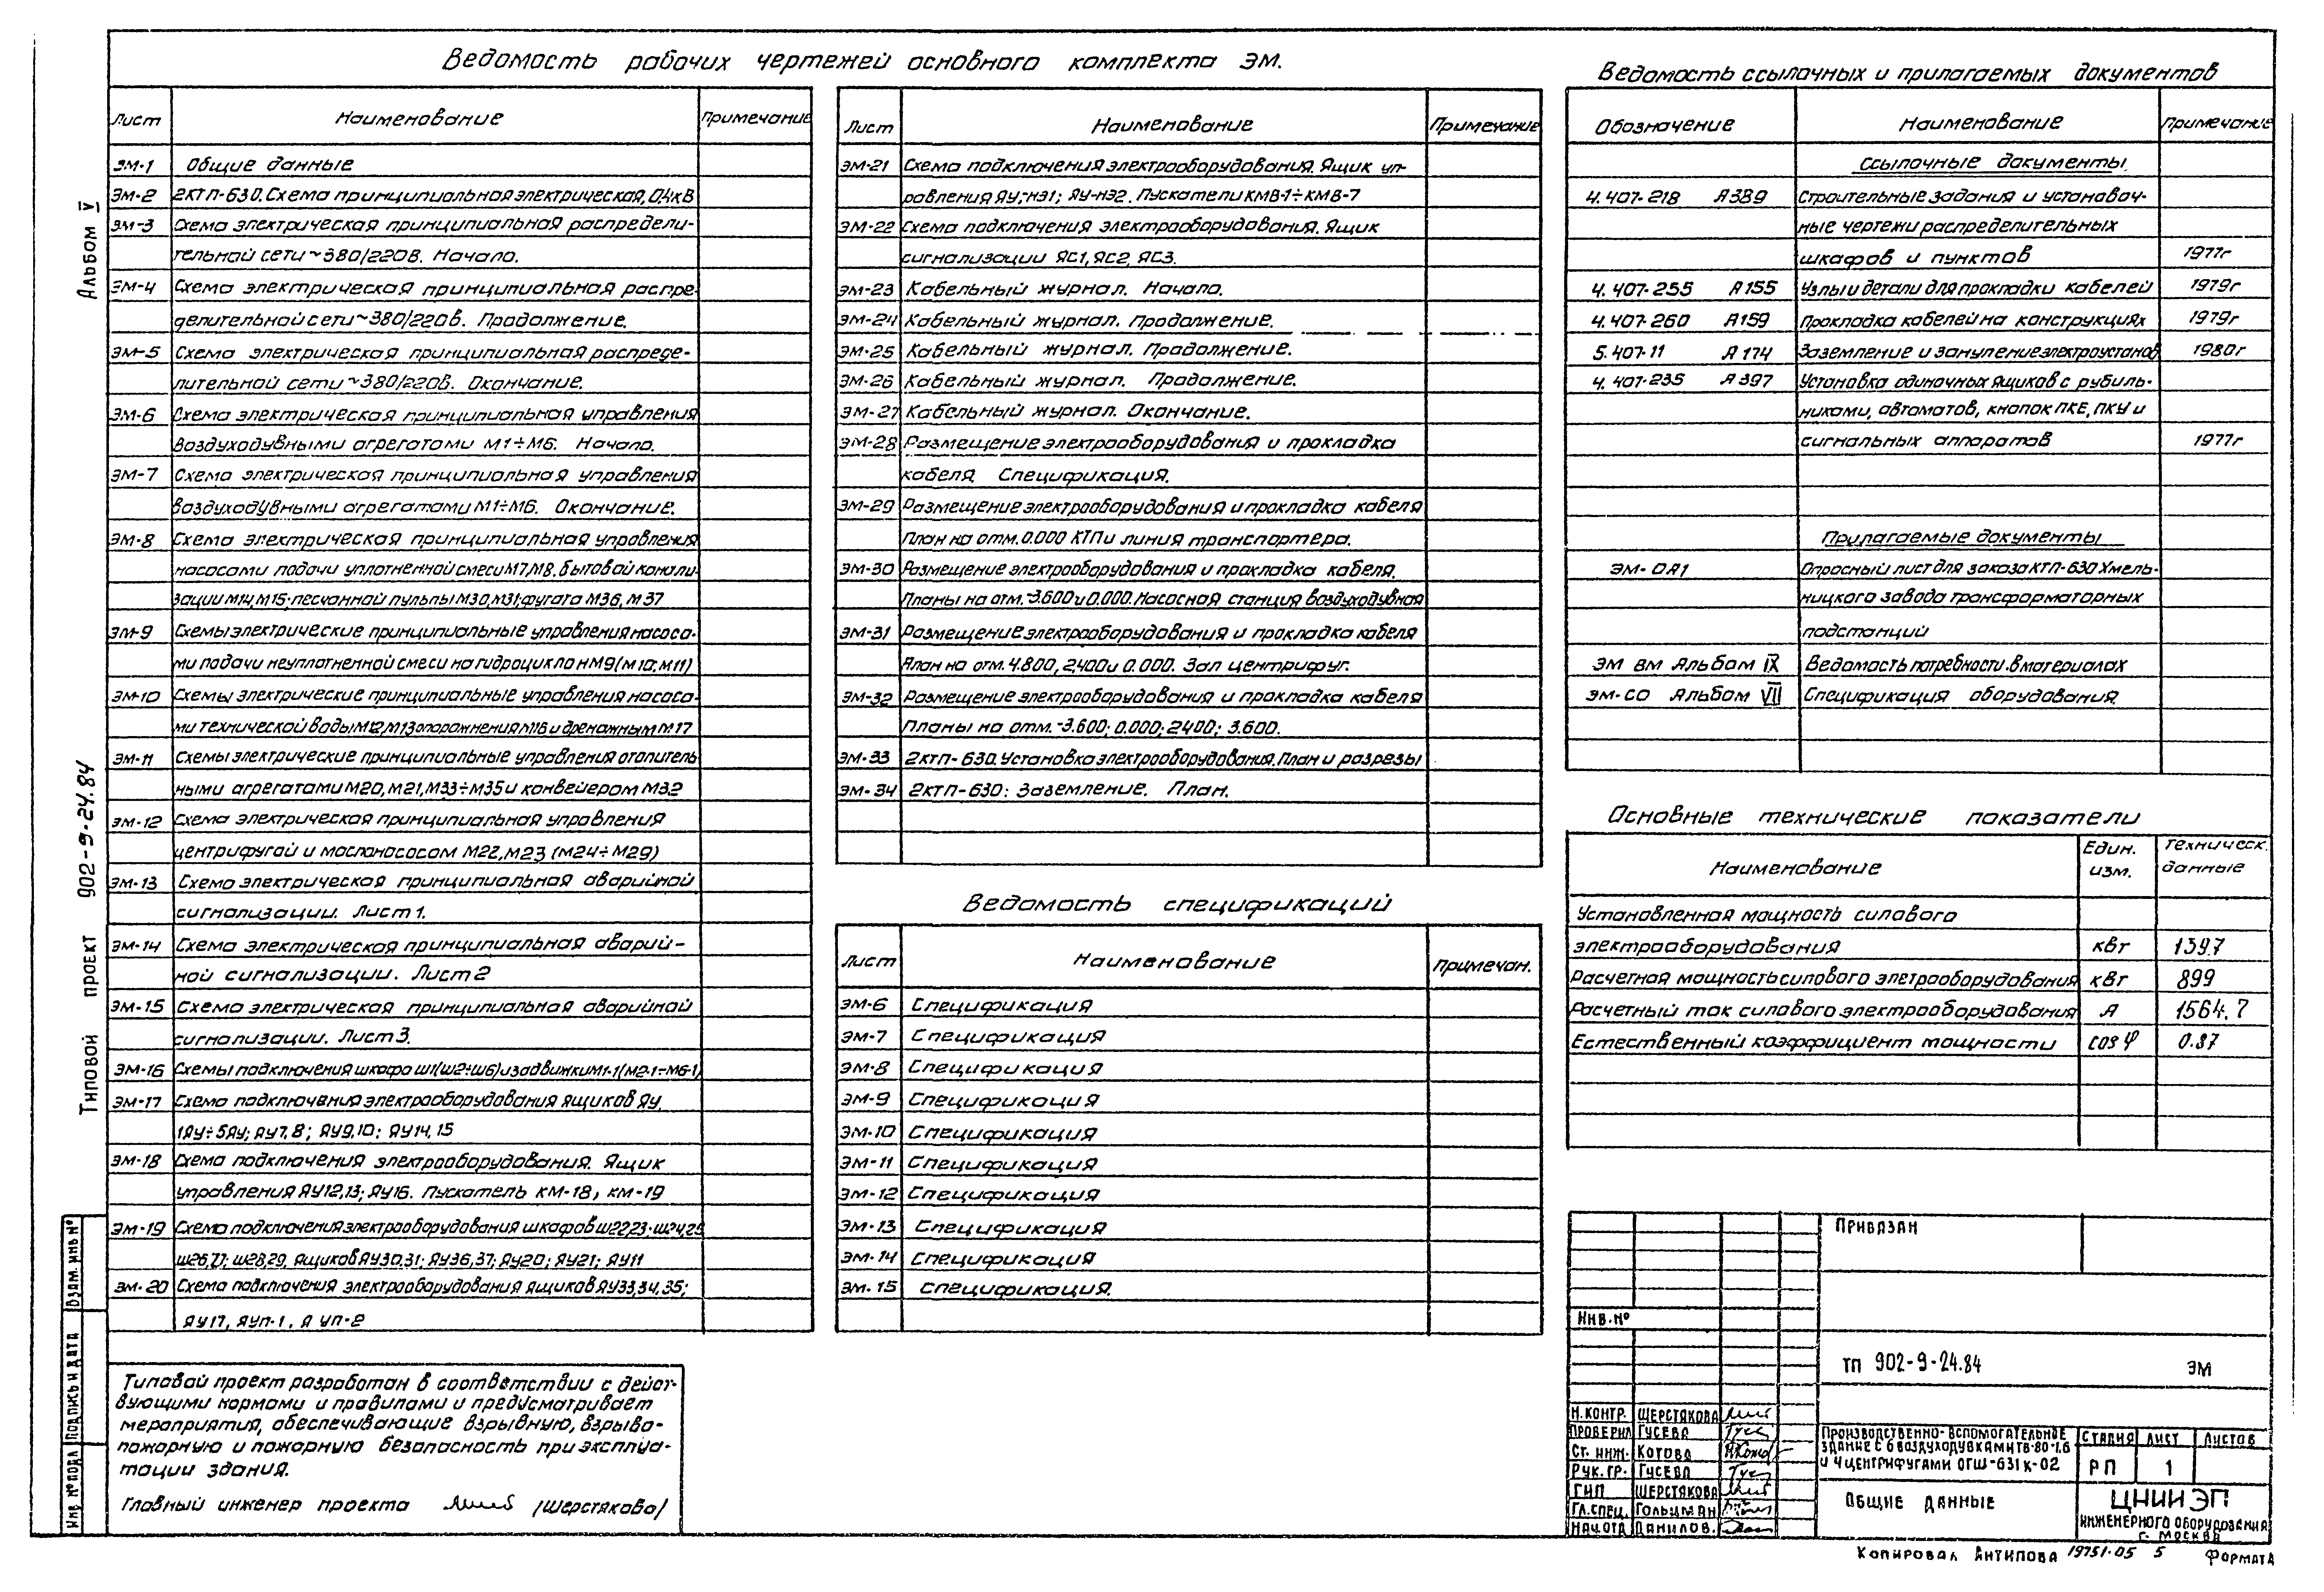 Ведомость рабочих чертежей основного комплекта ЭМ.
Лист Наименование Примечание
ЭМ-1 Общие данные
ЭМ-2 2КТП-630. Схема принципиальная электрическая, 0,4кВ
ЭМ-3 Схема электрическая принципиальная распредели-
тельной сети ~380/220В. Начало.
ЭМ-4 Схема электрическая принципиальная распре-
делительной сети ~380/220В. Продолжение.
ЭМ-5 Схема электрическая принципиальная распреде-
лительной сети ~380/220В. Окончание.
ЭМ-6 Схема электрическая принципиальная управления
воздуходувными агрегатами М1÷М6. Начало.
ЭМ-7 Схема электрическая принципиальная управления
воздуходувными агрегатами М1÷М6. Окончание.
ЭМ-8 Схема электрическая принципиальная управления
насосами подачи уплотненной смеси М7,М8. бытовой канали-
зации М14, М15; песчанной пульпы М30, М31; фугата М36, М37
ЭМ-9 Схемы электрические принципиальные управления насоса-
ми подачи неуплотненной смеси на гидроциклон М9(М10; М11)
ЭМ-10 Схемы электрические принципиальные управления насоса-
ми технической воды М12, М13 опорожнения М16 и дренажным М17
ЭМ-11 Схемы электрические принципиальные управления отопитель
ными агрегатами М20, М21, М33÷М35 и конвейером М32
ЭМ-12 Схема электрическая принципиальная управления
центрифугой и маслонасосом М22, М23 (М24÷М29)
ЭМ-13 Схема электрическая принципиальная аварийной
сигнализации. Лист 1.
ЭМ-14 Схема электрическая принципиальная аварий-
ной сигнализации. Лист 2
ЭМ-15 Схема электрическая принципиальная аварийной
сигнализации. Лист 3.
ЭМ-16 Схемы подключения шкафа Ш1(Ш2÷Ш6) и задвижки М1-1(М2-1÷М6-1)
ЭМ-17 Схема подключения электрооборудования ящиков ЯУ,
1ЯУ÷5ЯУ; ЯУ7, 8; ЯУ9,10; ЯУ14, 15
ЭМ-18 Схема подключения электрооборудования. Ящик
управления ЯУ12,13; ЯУ16. Пускатель КМ-18, КМ-19
ЭМ-19 Схема подключения электрооборудования шкафов Ш22,23; Ш24,25
Ш26,27; Ш28,29, ящиков ЯУ30,31; ЯУ36,37; ЯУ20; ЯУ21; ЯУ11
ЭМ-20 Схема подключения электрооборудования ящиков ЯУ33,34,35;
ЯУ17, ЯУП-1, ЯУП-2
Лист Наименование Примечание
ЭМ-21 Схема подключения электрооборудования. Ящик уп-
равления ЯУ-НЭ1; ЯУ-НЭ2. Пускатели КМВ-1÷КМВ-7
ЭМ-22 Схема подключения электрооборудования. Ящик
сигнализации ЯС1, ЯС2, ЯС3.
ЭМ-23 Кабельный журнал. Начало.
ЭМ-24 Кабельный журнал. Продолжение.
ЭМ-25 Кабельный журнал. Продолжение.
ЭМ-26 Кабельный журнал. Продолжение.
ЭМ-27 Кабельный журнал. Окончание.
ЭМ-28 Размещение электрооборудования и прокладка
кабеля. Спецификация.
ЭМ-29 Размещение электрооборудования и прокладка кабеля
План на отм. 0.000 КТП и линия транспортера.
ЭМ-30 Размещение электрооборудования и прокладка кабеля.
Планы на отм. -3.600 и 0.000. Насосная станция воздуходувная
ЭМ-31 Размещение электрооборудования и прокладка кабеля
План на отм. 4.800, 2400 и 0.000. Зал центрифуг.
ЭМ-32 Размещение электрооборудования и прокладка кабеля
Планы на отм. -3.600; 0.000; 2400; 3.600.
ЭМ-33 2КТП-630. Установка электрооборудования. План и разрезы
ЭМ-34 2КТП-630: Заземление. План.
Ведомость спецификаций
Лист Наименование Примечан.
ЭМ-6 Спецификация
ЭМ-7 Спецификация
ЭМ-8 Спецификация
ЭМ-9 Спецификация
ЭМ-10 Спецификация
ЭМ-11 Спецификация
ЭМ-12 Спецификация
ЭМ-13 Спецификация
ЭМ-14 Спецификация
ЭМ-15 Спецификация.
Ведомость ссылочных и прилагаемых документов
Обозначение Наименование Примечание
Ссылочные документы
4.407-218 А389 Строительные задания и установоч-
ные чертежи распределительных
шкафов и пунктов 1977г
4.407-255 А155 Узлы и детали для прокладки кабелей 1979г
4.407-260 А159 Прокладка кабелей на конструкциях 1979г
5.407-11 А174 Заземление и зануление электроустанов 1980г
4.407-235 А397 Установка одиночных ящиков с рубиль-
никами, автоматов, кнопок ПКЕ, ПКУ и
сигнальных аппаратов 1977г
Прилагаемые документы
ЭМ-ОЛ1 Опросный лист для заказа КТП-630 Хмель-
ницкого завода трансформаторных
подстанций
ЭМ ВМ Альбом IX Ведомость потребности в материалах
ЭМ-СО Альбом VII Спецификация оборудования.
Основные технические показатели
Наименование Един. изм. Техническ. данные
Установленная мощность силового
электрооборудования кВт 1397
Расчетная мощность силового элетрооборудования кВт 899
Расчетный ток силового электрооборудования А 1564.7
Естественный коэффициент мощности cos φ 0.87
Типовой проект разработан в соответствии с дейст-
вующими нормами и правилами и предусматривает
мероприятия, обеспечивающие взрывную, взрыво-
пожарную и пожарную безопасность при эксплуа-
тации здания.
Главный инженер проекта /Шерстякова/
Типовой проект 902-9-24.84 Альбом V
Инв. № подл Подпись и дата Взам. инв №
Привязан
Инв. №
ТП 902-9-24.84 ЭМ
Н. контр. Шерстякова
Проверил Гусева
Ст. инж. Котова
Рук. гр. Гусева
ГИП Шерстякова
Гл. спец. Гольцман
Нач. отд Данилов.
Производственно-вспомогательное
здание с 6 воздуходувками ТВ-80-1,6
и 4 центрифугами ОГШ-631К-02
Стадия Лист Листов
РП 1
Общие данные
ЦНИИЭП
инженерного оборудования
г. Москва
Копировал Антипова 19751-05 5 Формат А